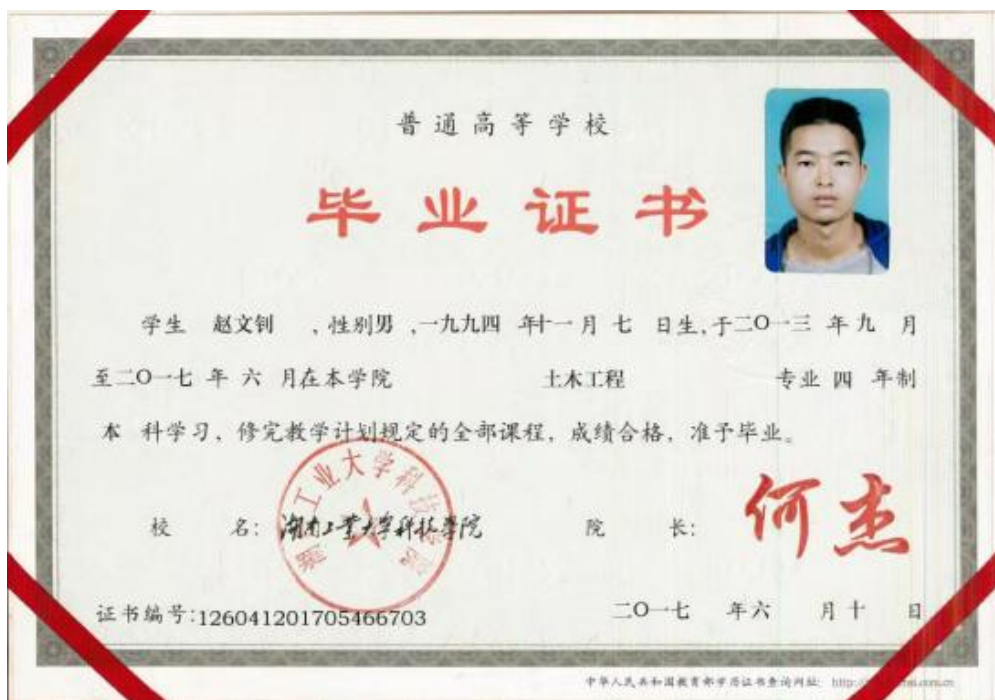 普通高等学校
毕业证书
学生 赵文钊 ,性别男 ,一九九四 年十一月 七 日生,于二〇一三 年九 月
至二〇一七 年 六 月在本学院 土木工程 专业 四 年制
本 科学习,修完教学计划规定的全部课程,成绩合格,准予毕业。
校 名: 湖南工业大学科技学院 院 长: 何杰
湖南工业大学科技学院
证书编号:126041201705466703 二〇一七 年六 月十 日
中华人民共和国教育部学历证书查询网址: http://